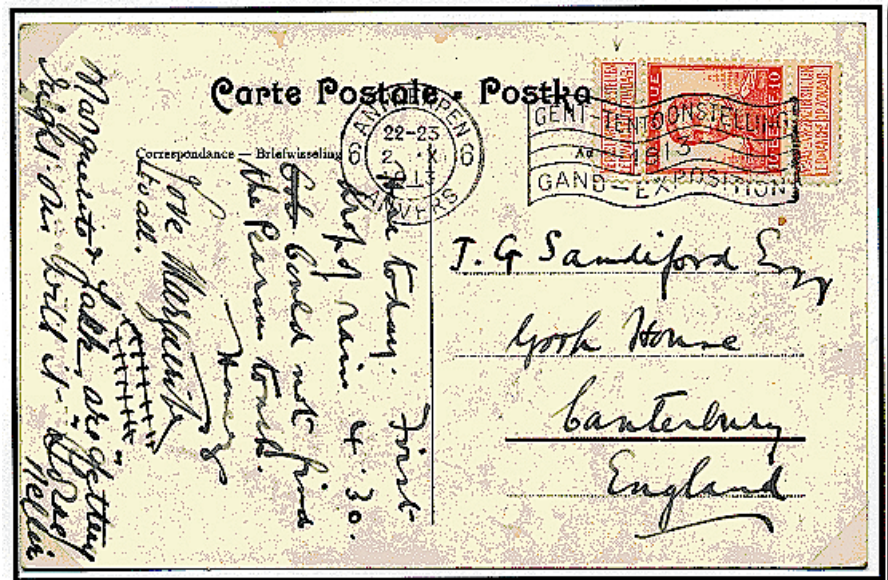 Carte Postale - Postka
Correspondance — Briefwisseling
ANTWERPEN
6 22-23 6
2 X
1913
ANVERS
GENT-TENTOONSTELLING
1913
GAND-EXPOSITION
10
J. G Sandiford Esq
York House
Canterbury
England
Here today. First
drop of rain 4.30.
Could not find
the Pearson touch.
Henry
Love Marguerite
to all.
Marguerite & Jack are getting